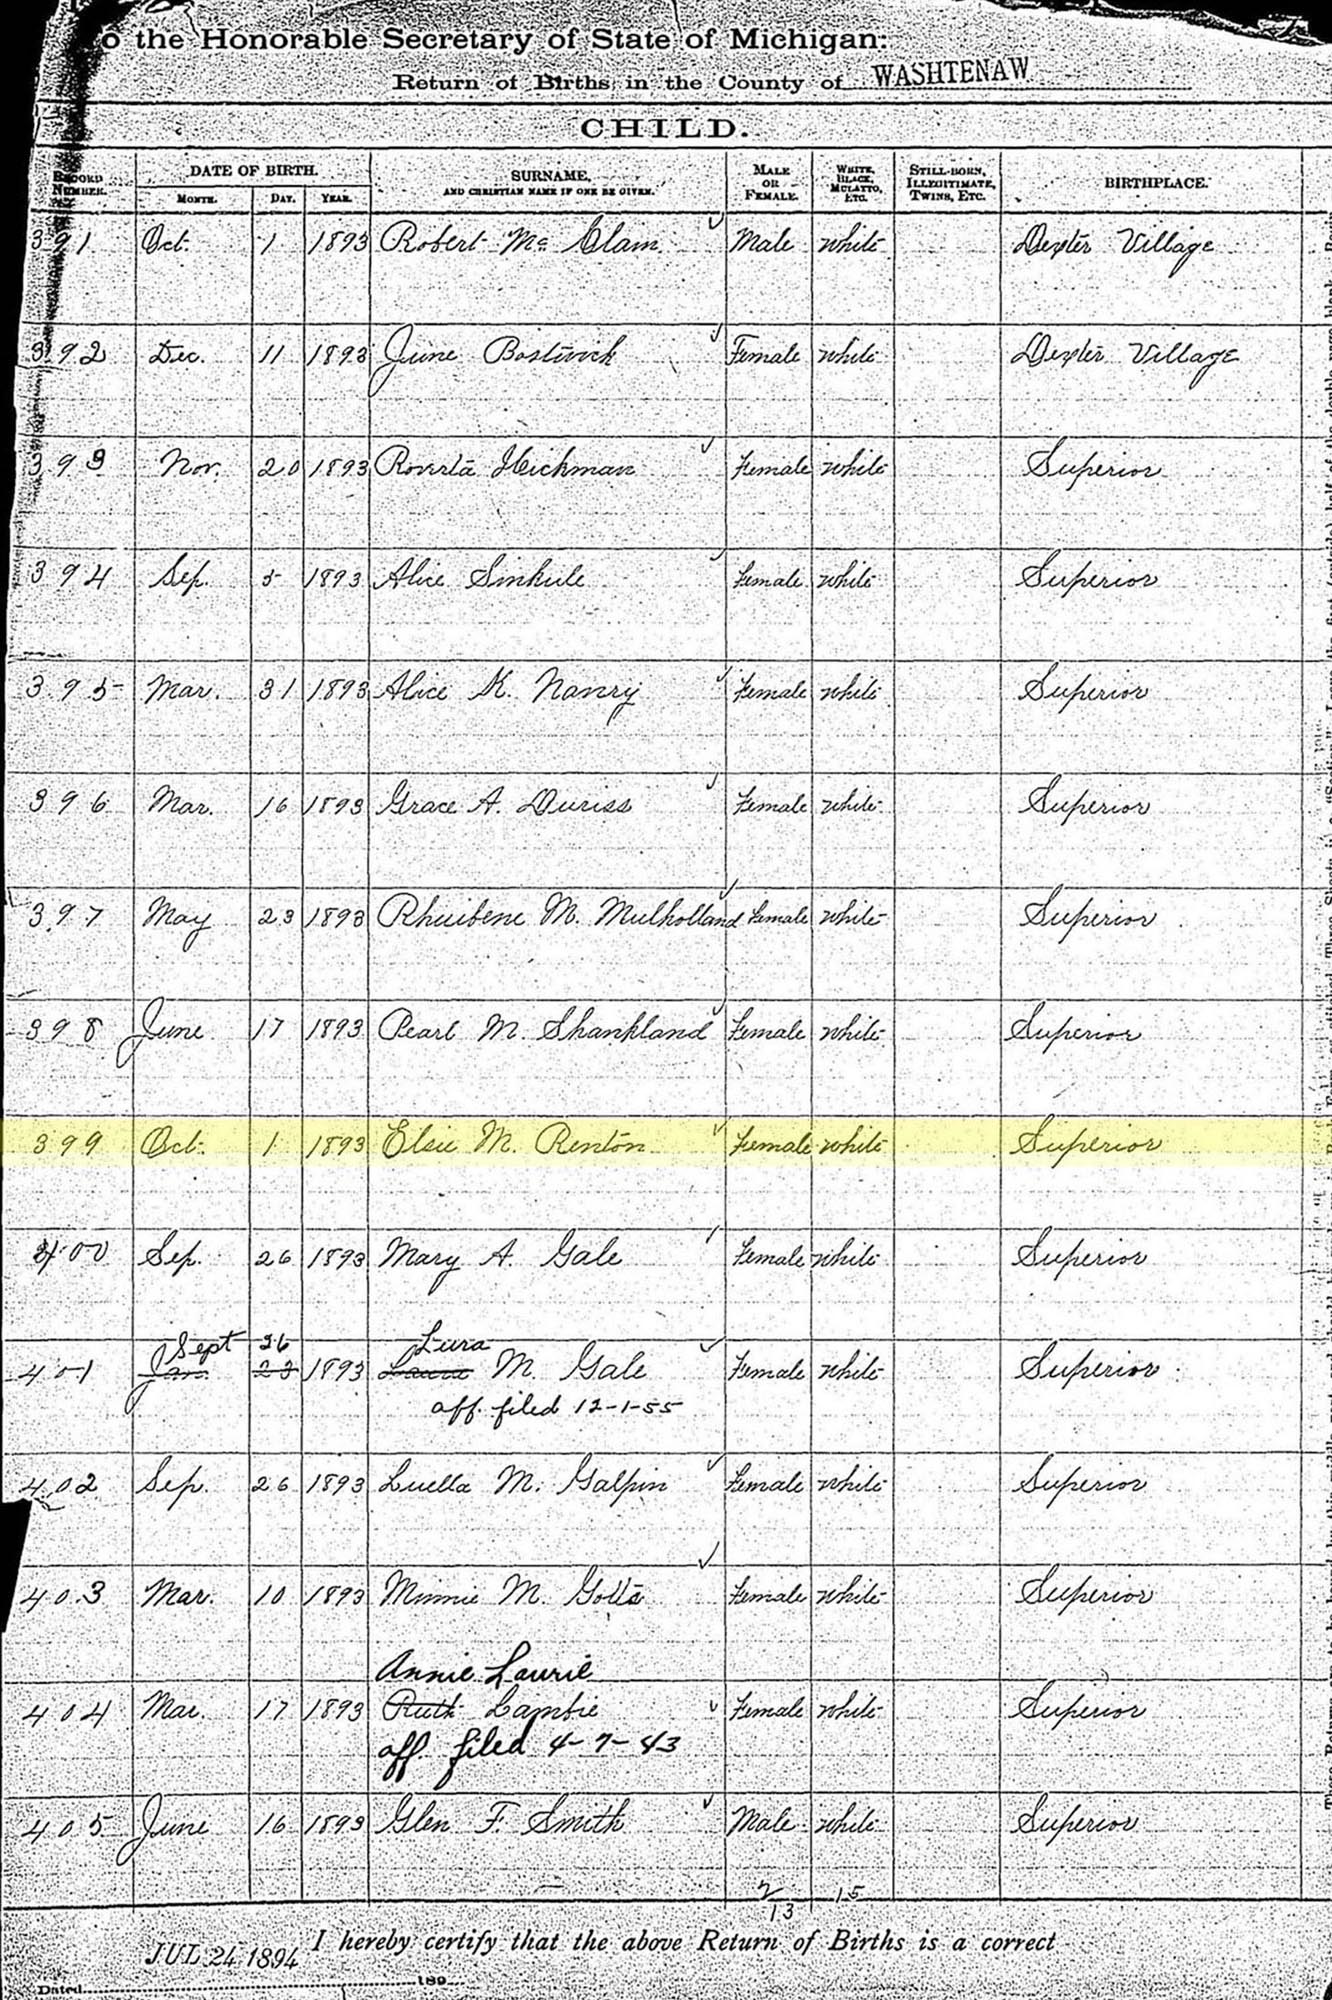 o the Honorable Secretary of State of Michigan:
Return of Births in the County of WASHTENAW
CHILD.
RECORD NUMBER. DATE OF BIRTH. MONTH. DAY. YEAR. SURNAME, AND CHRISTIAN NAME IF ONE BE GIVEN. MALE OR FEMALE. WHITE, BLACK, MULATTO, ETC. STILL-BORN, ILLEGITIMATE, TWINS, ETC. BIRTHPLACE.
391 Oct. 1 1893 Robert Mc Clam Male white Dexter Village
392 Dec. 11 1893 June Bostwick Female white Dexter Village
393 Nov. 20 1893 Roverta Hickman Female white Superior
394 Sep. 5 1893 Alice Sinkule Female white Superior
395 Mar. 31 1893 Alice K. Nanry Female white Superior
396 Mar. 16 1893 Grace A. Duriss Female white Superior
397 May 23 1893 M. Mulholland Female white Superior
398 June 17 1893 Pearl M. Shankland Female white Superior
399 Oct. 1 1893 Elsie M. Renton Female white Superior
400 Sep. 26 1893 Mary A. Gale Female white Superior
Sept 26 Lura
401 Jan. 23 1893 Laura M. Gale Female white Superior
aff. filed 12-1-55
402 Sep. 26 1893 Luella M. Galpin Female white Superior
403 Mar. 10 1893 Minnie M. Gotts Female white Superior
Annie Laurie
404 Mar. 17 1893 Ruth Lambie Female white Superior
aff. filed 4-7-43
405 June 16 1893 Glen F. Smith Male white Superior
2 15
13
I hereby certify that the above Return of Births is a correct
JUL 24 1894
Dated 189